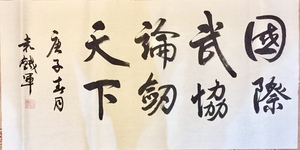 國際
武協
論劍
天下
庚子春月
袁鐵軍